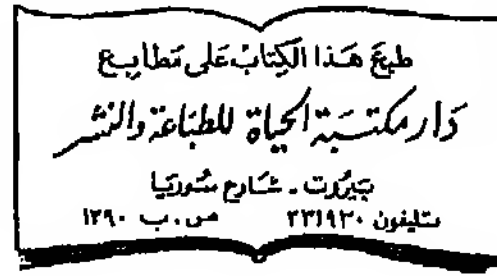 طبعَ هَذا الكِتابْ عَلى مَطابع
دَار مكتبَة الحيَاة للطبَاعَة والنشر
بَيرُوت - شَارع سُوريَا
تليفون ٢٣١٩٢٠ ص.ب ١٣٩٠